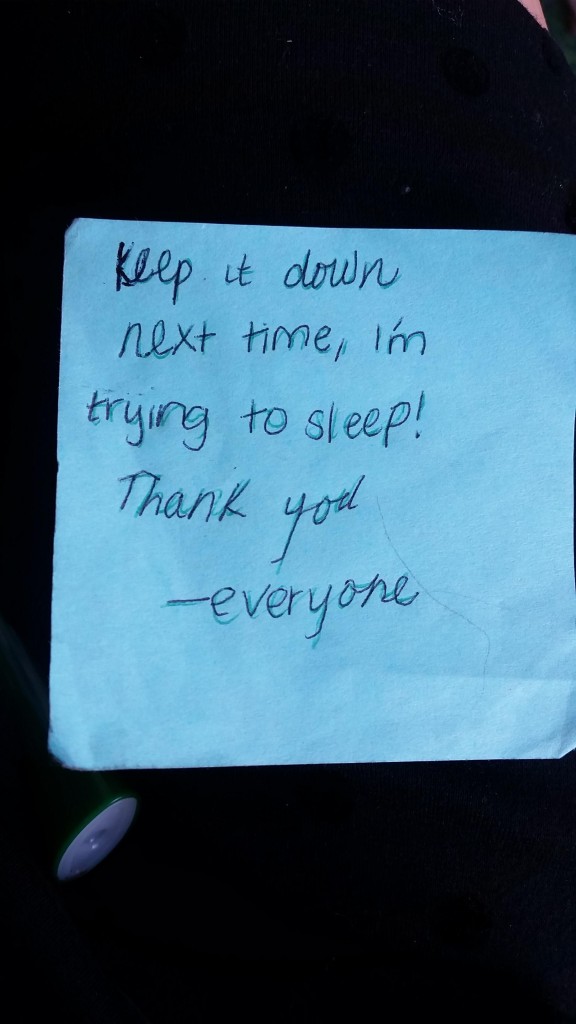 Keep it down
next time, I'm
trying to sleep!
Thank you
—everyone